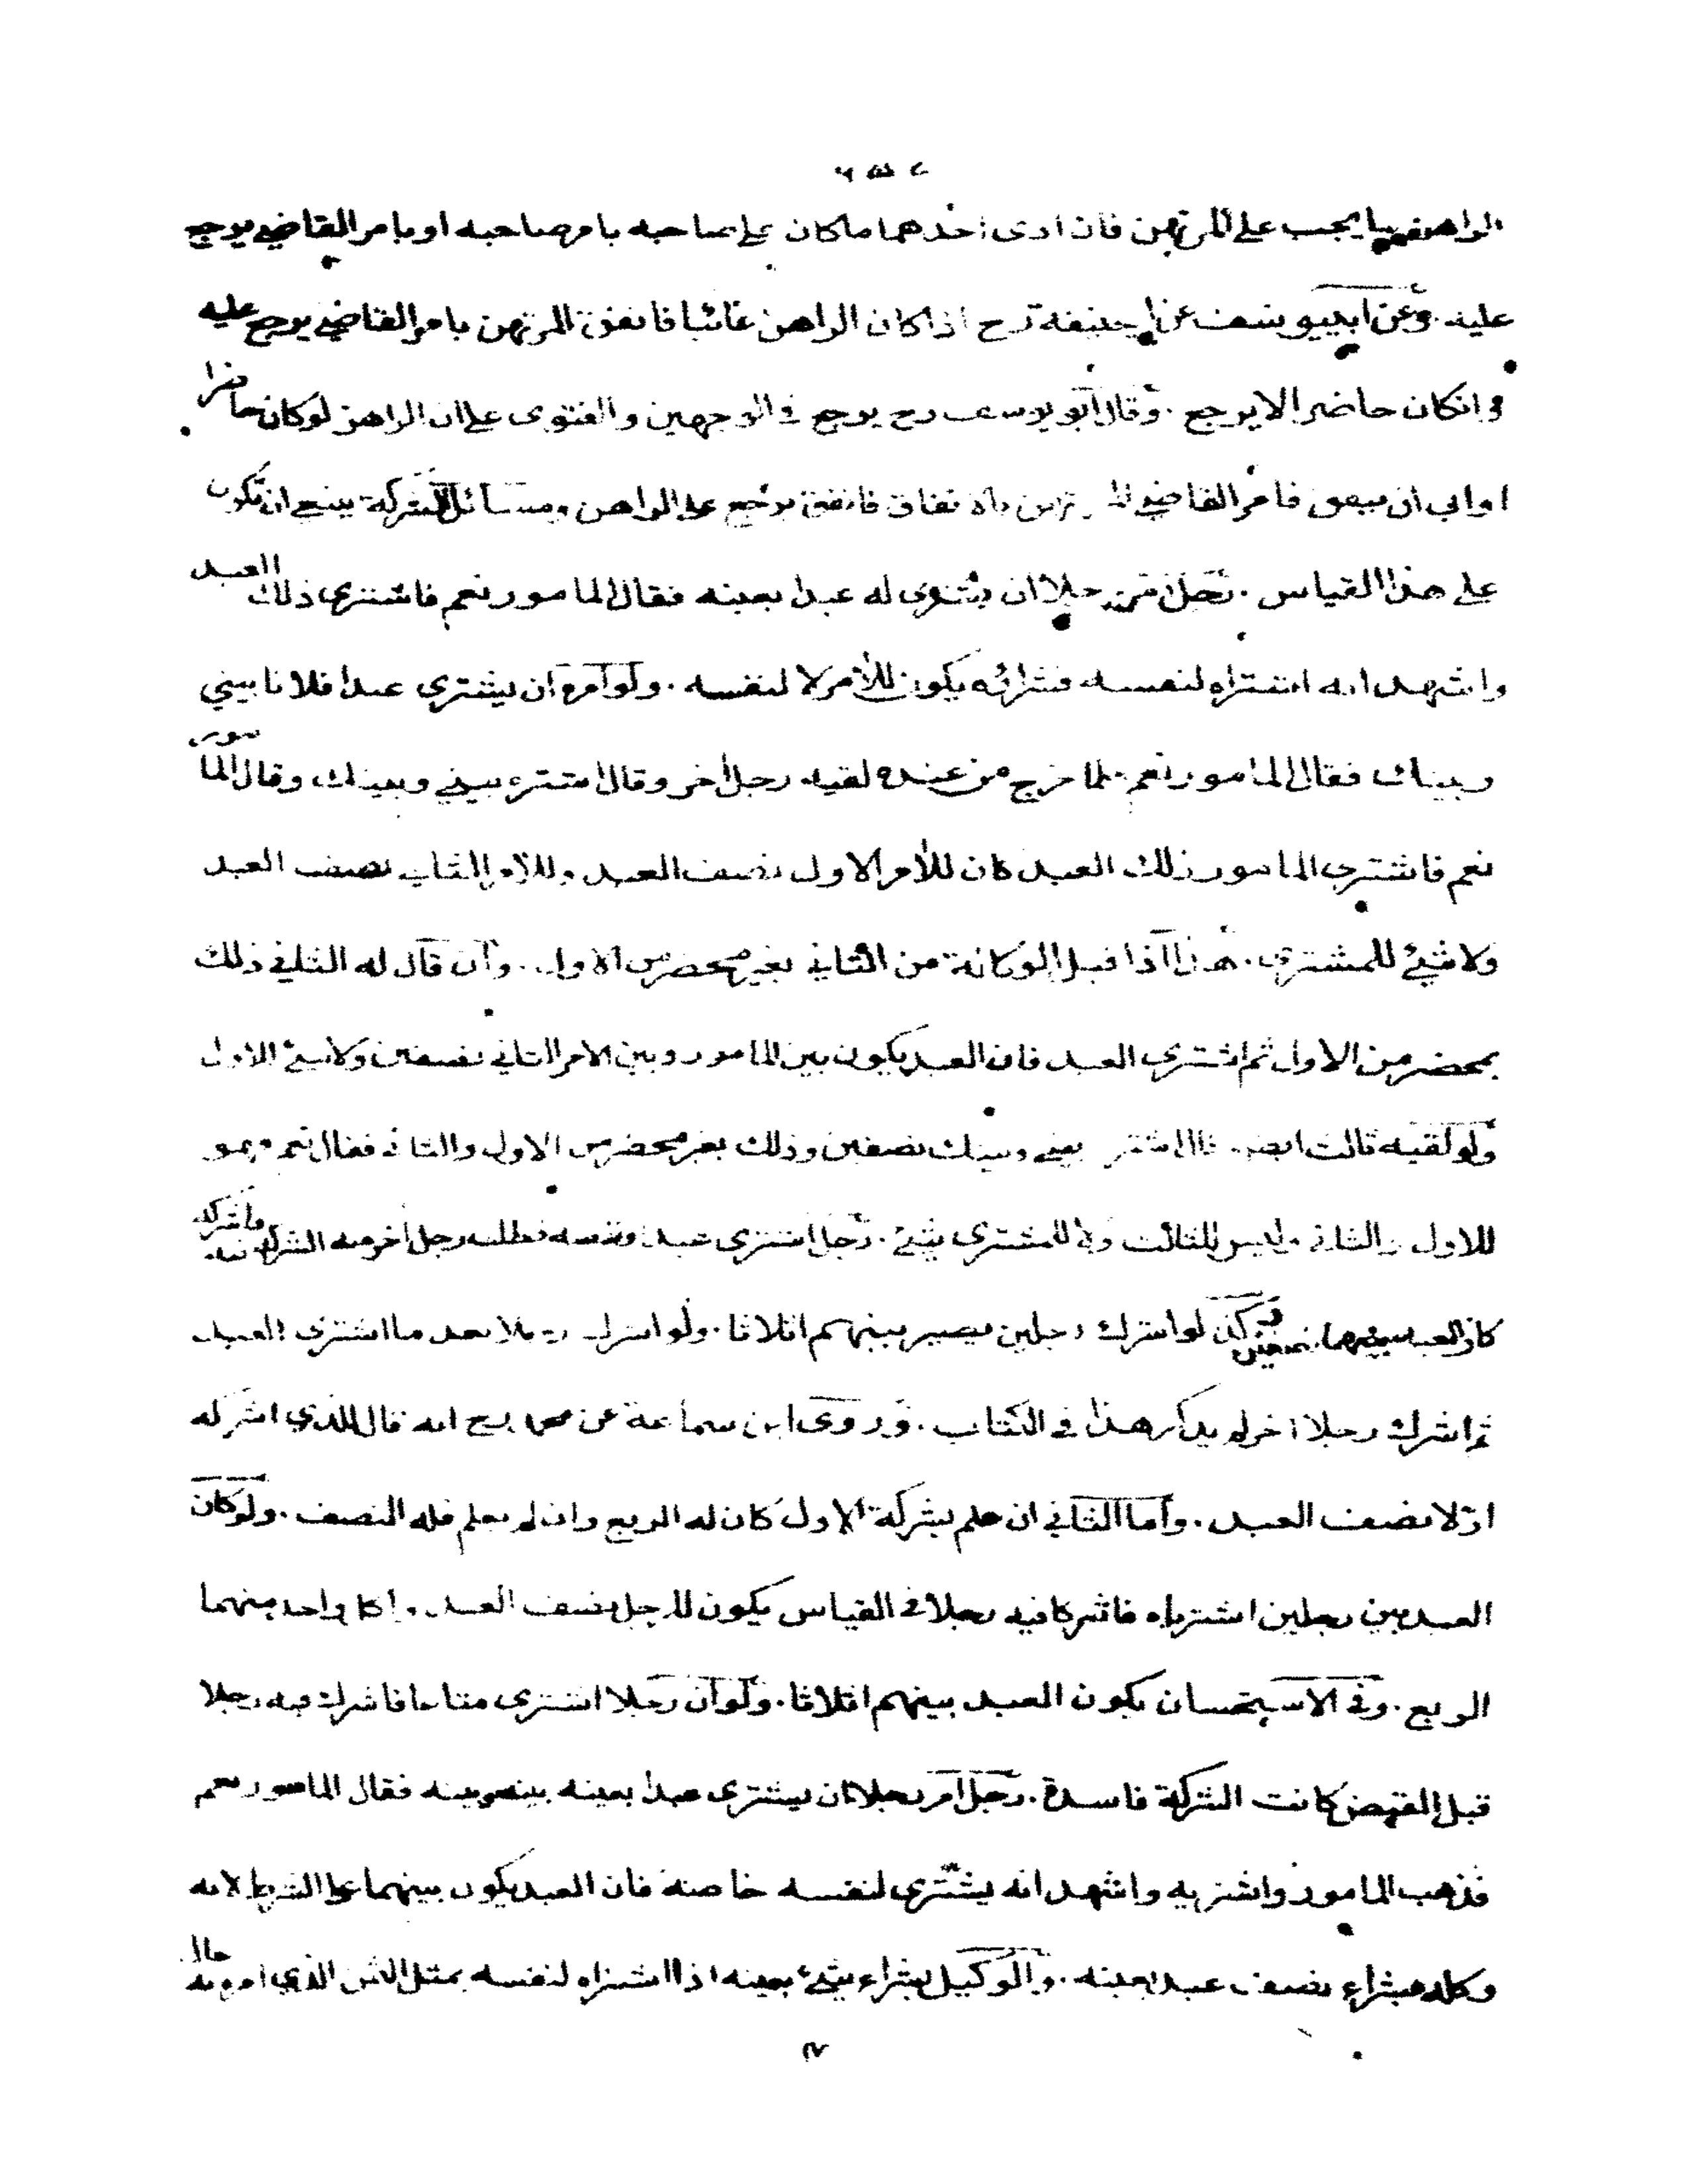 الراهن فيما يجب على المرتهن فان ادى احدهما ماكان على صاحبه بامر صاحبه او بامر القاضي يرجع
عليه . وعن ابي يوسف عن ابي حنيفة رح اذا كان الراهن غائبا فانفق المرتهن بامر القاضي يرجع عليه
وانكان حاضرا لا يرجع . وقال ابو يوسف رح يرجع في الوجهين والفتوى على ان الراهن لوكان حاضرا
او ابى ان ينفق فامر القاضي بالانفاق فانفق يرجع على الراهن ومسائل الشركة ينبغي ان تكون
على هذا القياس . رجل امر رجلا ان يشتري له عبدا بعينه فقال المامور نعم فاشترى ذلك العبد
واشهد انه اشتراه لنفسه فشرائه يكون للأمر لا لنفسه . ولو امره ان يشتري عبدا فلانا بيني
وبينك فقال المامور نعم فلما خرج من عنده لقيه رجل اخر وقال اشتره بيني وبينك وقال المامور
نعم فاشترى المامور ذلك العبد كان للأمر الاول نصف العبد وللأمر الثاني نصف العبد
ولا شيئ للمشتري . هذا اذا قبل الوكالة من الثاني بغير محضر من الاول . وان قال له الثاني ذلك
بمحضر من الاول ثم اشترى العبد فان العبد يكون بين المامور وبين الامر الثاني نصفين ولا شيئ للاول
ولو لقيه ثالث ايضا فقال اشتر بيني وبينك نصفين وذلك بغير محضر من الاول والثاني فقال نعم فهو
للاول والثاني وليس للثالث ولا للمشتري شيئ . رجل اشترى عبدا وقبضه فطلب رجل اخر منه الشركة فاشركه فيه
كان العبد بينهما نصفين وكذا لو اشرك رجلين يصير بينهم اثلاثا . ولو اشرك رجلا بعد ما اشترى العبد
ثم اشرك رجلا اخر لم يذكر هذا في الكتاب . وروى ابن سماعة عن محمد رح انه قال للذي اشركه
اولا نصف العبد . واما الثاني ان علم بشركة الاول كان له الربع وان لم يعلم فله النصف . ولو كان
العبد بين رجلين اشترياه فاشركا فيه رجلا في القياس يكون للرجل نصف العبد ولكل واحد منهما
الربع . وفي الاستحسان يكون العبد بينهم اثلاثا . ولو ان رجلا اشترى متاعا فاشرك فيه رجلا
قبل القبض كانت الشركة فاسدة . رجل امر رجلا ان يشتري عبدا بعينه بينه وبينه فقال المامور نعم
فذهب المامور واشتريه واشهد انه يشتري لنفسه خاصة فان العبد يكون بينهما على الشرط لانه
وكله بشراء نصف عبد بعينه . والوكيل بشراء شيئ بعينه اذا اشتراه لنفسه بمثل الثمن الذي امر به حال